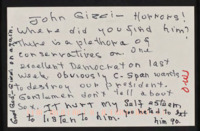 John Gizzi - Horrors!
Where did you find him?
There is a plethora of
conservatives on. One
excellent Democrat on last
week. Obviously C-Span wants
to destroy our president.
Gentlemen don't tell about
Sex. IT HURT my Self esteem
to listen to him.
you hated to let
him go.